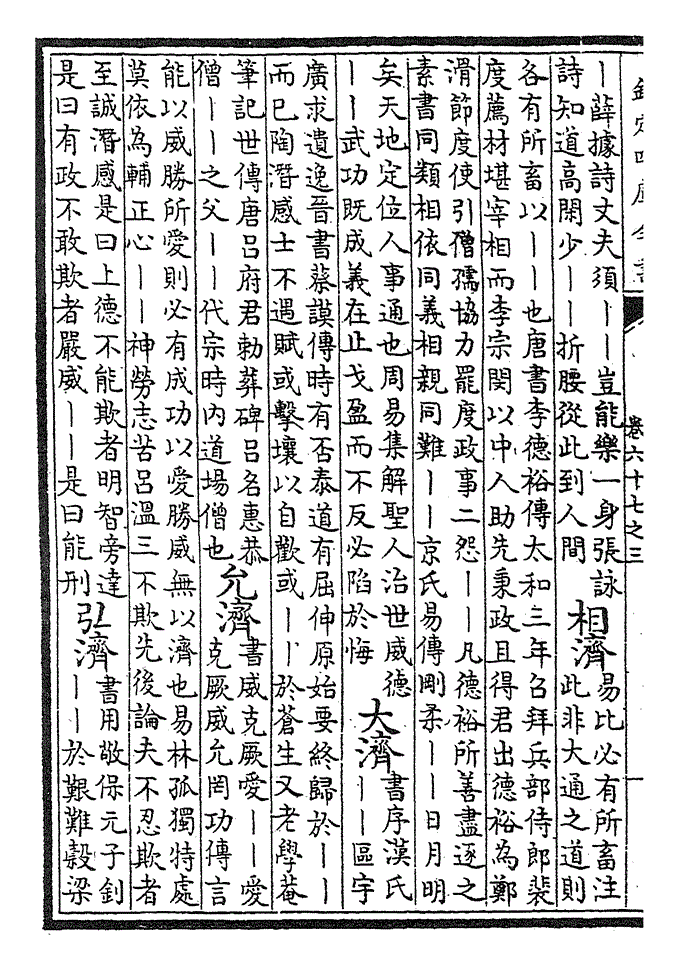 欽定四庫全書
卷六十七之三
丨薛據詩丈夫須丨丨豈能樂一身張詠
詩知道高閑少丨丨折腰從此到人間
相濟
易比必有所畜注
此非大通之道則
各有所畜以丨丨也唐書李德裕傳太和三年召拜兵部侍郎裴
度薦材堪宰相而李宗閔以中人助先秉政且得君出德裕為鄭
滑節度使引僧孺協力罷度政事二怨丨丨凡德裕所善盡逐之
素書同類相依同義相親同難丨丨京氏易傳剛柔丨丨日月明
矣天地定位人事通也周易集解聖人治世威德
丨丨武功既成義在止戈盈而不反必陷於悔
大濟
書序漢氏
丨丨區宇
廣求遺逸晉書蔡謨傳時有否泰道有屈伸原始要終歸於丨丨
而已陶潛感士不遇賦或擊壤以自歡或丨丨於蒼生又老學菴
筆記世傳唐呂府君勅葬碑呂名惠恭
僧丨丨之父丨丨代宗時內道場僧也
允濟
書威克厥愛丨丨愛
克厥威允罔功傳言
能以威勝所愛則必有成功以愛勝威無以濟也易林孤獨特處
莫依為輔正心丨丨神勞志苦呂溫三不欺先後論夫不忍欺者
至誠潛感是曰上德不能欺者明智旁達
是曰有政不敢欺者嚴威丨丨是曰能刑
弘濟
書用敬保元子釗
丨丨於艱難穀梁